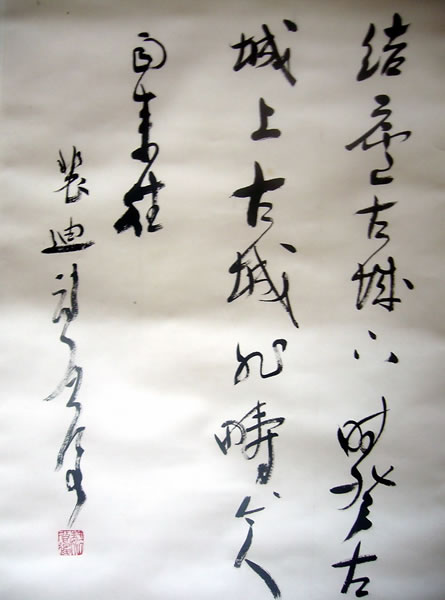 结庐古城下时登古
城上古城非畴今人
自来往
裴迪诗